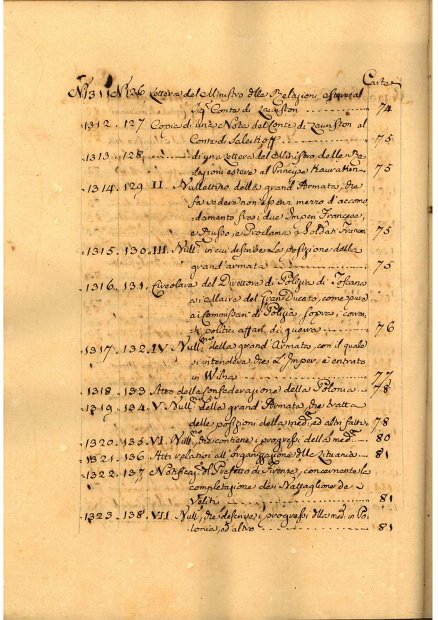 Carte
N.° 1311. N.° 126. Lettera del Ministro delle Relazioni estere al
Sig.r Conte di Lauriston ........ 74
1312. 127. Copia di una Nota del Conte di Lauriston al
Conte di Saltikoff ........ 75
1313. 128. ........ di una Lettera del Ministro delle Re-
lazioni estere al Principe Kourakin ........ 75
1314. 129. II. Bullettino della grand'Armata, che
fa vedere non esservi mezzo d'accomo-
damento fra i due Imperi Francese,
e Russo, e Proclama a' Soldati Francesi 75
1315. 130. III. Bull.no in cui descrive la posizione della
grand'armata ........ 75
1316. 131. Circolare del Direttore di Polizia di Toscana
ai Maire del Gran Ducato, come pure
ai Commissari di Polizia, sopra i
politici affari di guerra ........ 76
1317. 132. IV. Bull.no della grand'Armata, con il quale
s'intendeva, che l'Imper.e è entrato
in Wilna ........ 77
1318. 133. Atto della Confederazione della Polonia ........ 78
1319. 134. V. Bull.no della grand'Armata, che tratta
delle posizioni della med.a, ed altri fatti 78
1320. 135. VI. Bull.no, che contiene i progressi della med.a ........ 80
1321. 136. Atti relativi all'organizzazione della Lituania ........ 81
1322. 137. Notificaz.e del Prefetto di Firenze, concernente la
completazione dei Battaglione da
Veliti ........ 81
1323. 138. VII. Bull.no, che descrive i progressi della med.a in Po-
lonia, ed altro ........ 81